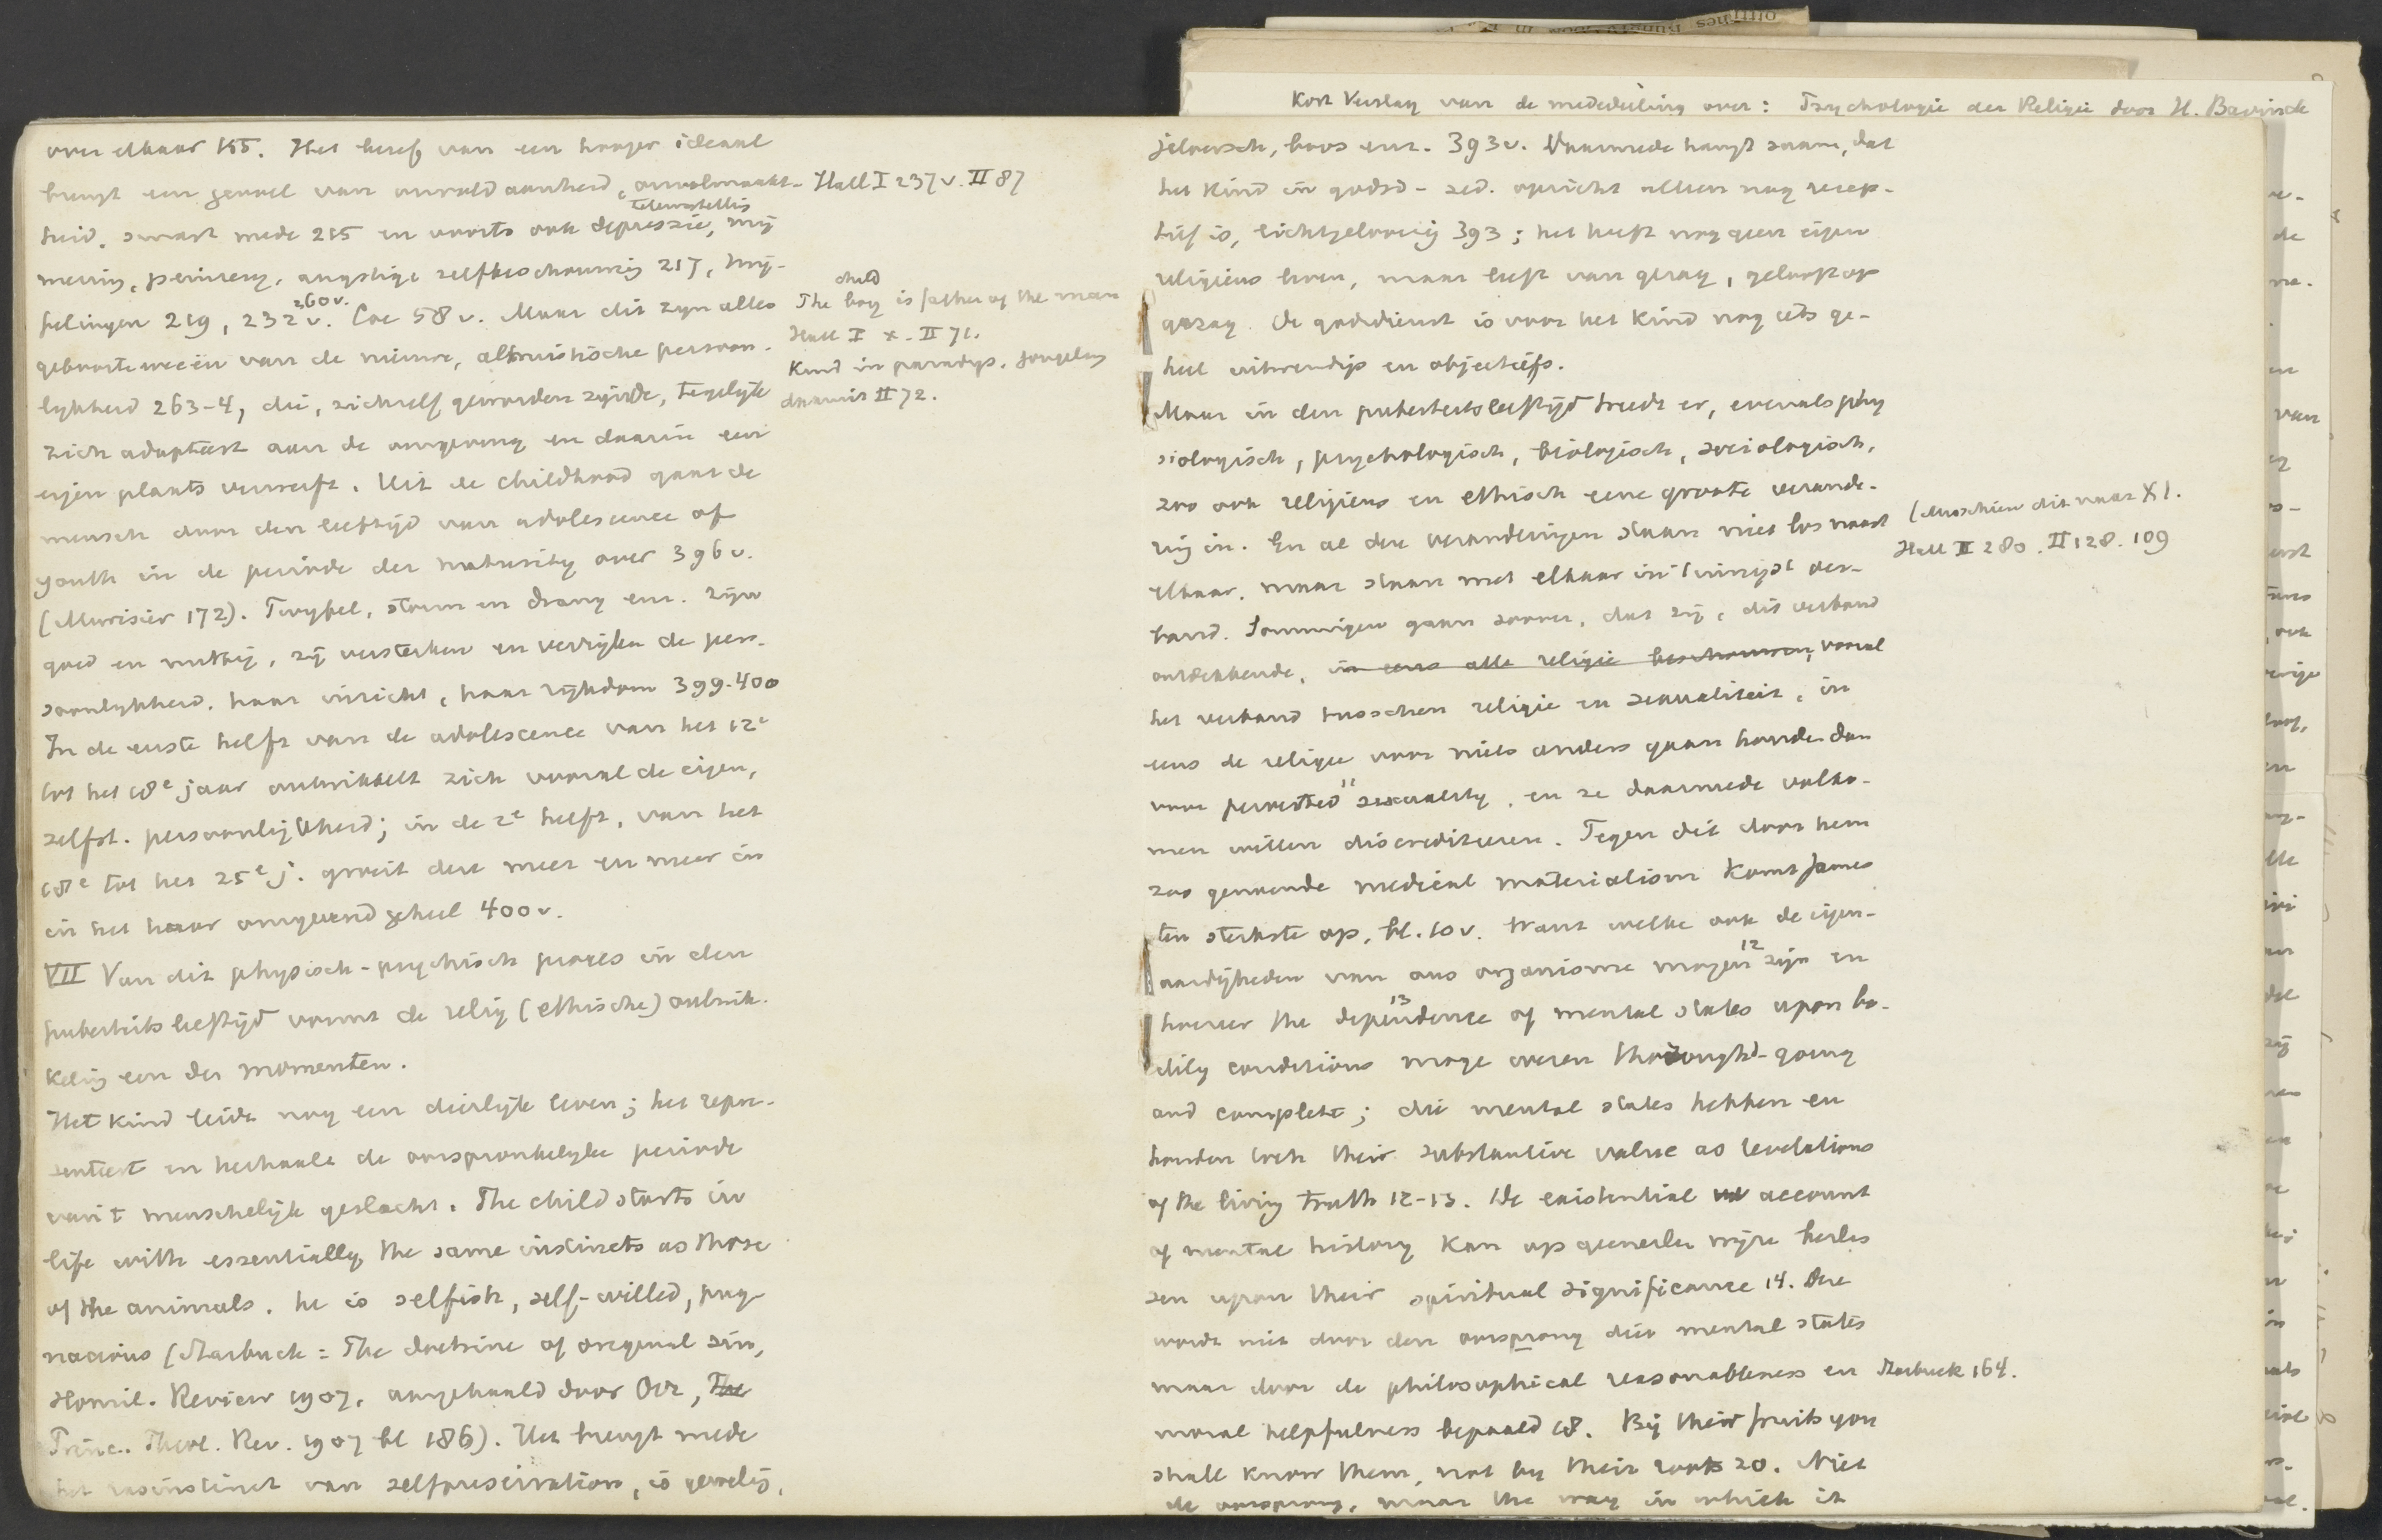 Kort Verslag van de mededeeling over: Psychologie der Religie door H. Bavinck
over elkaar 155. Het besef van een hooger ideaal
brengt een gevoel van onvoldaanheid, onvolmaakt-
heid, smart mede 215 en voorts ook depressie, teleurstelling, mij
mering, peinzery, angstige zelfbeschouwing 217, twij-
felingen 219, 232 v. 260 v. Coe 58 v. Maar dit zyn alles
geboorteweeën van de nieuwe, altruistische persoon-
lykheid 263-4, die, zichzelf geworden zynde, tegelyk
zich adapteert aan de omgeving en daarin een
eigen plaats verwerft. Uit de childhood gaat de
mensch door den leeftijd van adolescence of
youth in de periode der maturity over 396 v.
(Murisier 172). Twyfel, storm en drang enz. zyn
goed en nuttig, zij versterken en verryken de pers-
soonlykheid, haar inzicht, haar rijkdom 399-400
In de eerste helft van de adolescence van het 12e
tot het 18e jaar ontwikkelt zich vooral de eigen,
zelfst. persoonlijkheid; in de 2e helft, van het
18e tot het 25e j. groeit deze meer en meer in
in het haar omgevend geheel 400 v.
VII Van dit physisch-psychisch proces in den
puberteitsleeftijd vormt de relig (ethische) ontwik-
keling een der momenten.
Het kind leidt nog een dierlijk leven; het repre-
senteert en herhaalt de oorspronkelyke periode
van 't menschelijk geslacht. The child starts in
life with essentially the same instincts as those
of the animals. he is selfish, self-willed, pug-
nacious (Starbuck: The doctrine of original sin,
Homil. Review 1907, aangehaald door Orr, The
Princ. Theol. Rev. 1907 bl 186). Het brengt mede
het rasinstinct van selfpreservation, is gevoelig,
Hall I 237 v. II 87
child
The boy is father of the man
Hall I x. II 71.
Kind in paradys. Jongeling
daaruit II 72.
jeloersch, boos enz. 393 v. Daarmede hangt saam, dat
het kind in godsd-zed. opzicht alleen nog recep-
tief is, lichtgeloovig 393; het heeft nog geen eigen
religieus leven, maar leeft van gezag, gelooft op
gezag. De godsdienst is voor het kind nog iets ge-
heel uitwendigs en objectiefs.
Maar in den puberteitsleeftijd treedt er, evenals phy
siologisch, psychologisch, biologisch, sociologisch,
zoo ook religieus en ethisch eene groote verande-
ring in. En al deze veranderingen staan niet los naast
elkaar, maar staan met elkaar in 't innigst ver-
band. Sommigen gaan zoover, dat zij, dit verband
ontdekkende, in eens alle religie beschouwen, vooral
het verband tusschen religie en sexualiteit, in
eens de religie voor niets anders gaan houden dan
voor perverted 11 sexuality, en ze daarmede volko-
men willen discrediteeren. Tegen dit door hem
zoo genoemde medical materialism komt James
ten sterkste op, bl. 10 v. want welke ook de eigen-
aardigheden van ons organisme mogen 12 zijn en
hoezeer the dependence 13 of mental states upon bo-
dily conditions moge wezen thorough-going
and complete; die mental states hebben en
houden toch their substantive value as revelations
of the living truth 12-13. De existential account
of mental history kan op geenerlei wijze besli
sen upon their spiritual significance 14. Deze
wordt niet door den oorsprong dier mental states
maar door de philosophical reasonableness en
moral helpfulness bepaald 18. By their fruits you
shall know them, not by their roots 20. Niet
de oorsprong, maar the way in which it
(Misschien dit naar XI.
Hall II 280. II 128. 109
Starbuck 164.